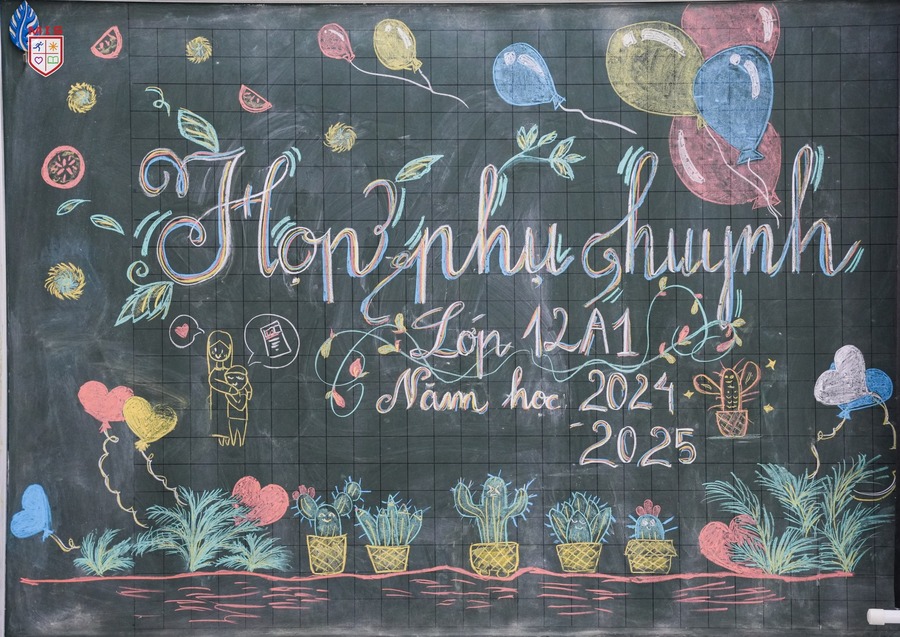 Họp phụ huynh
Lớp 12A1
Năm học 2024
- 2025